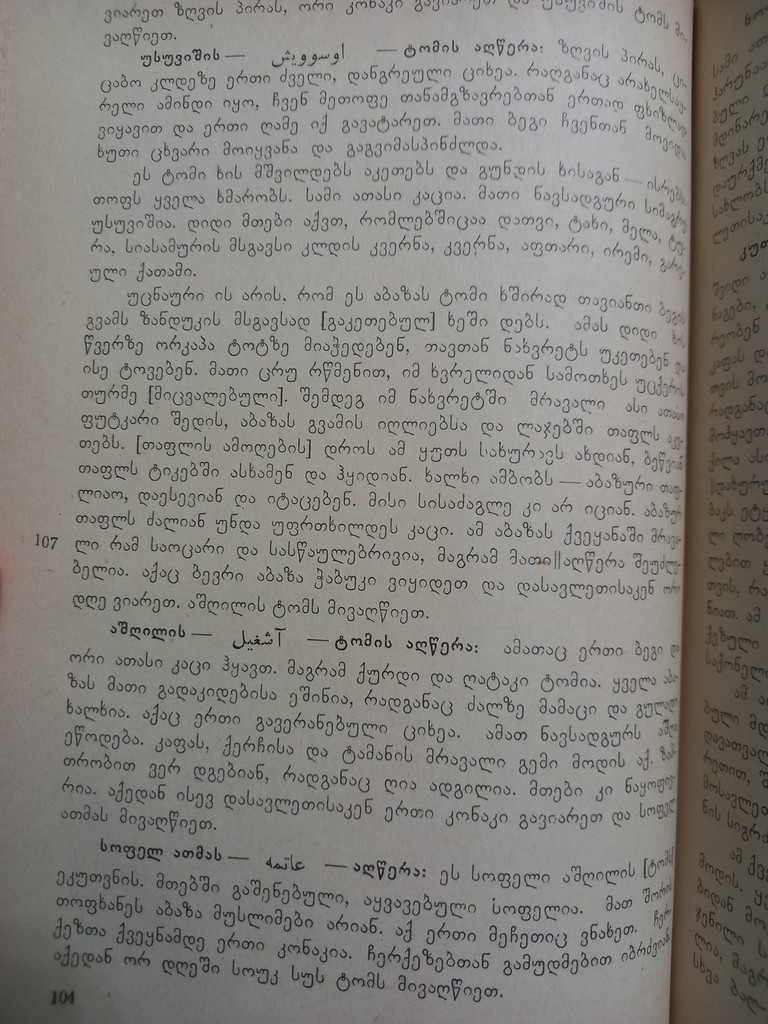 ვიარეთ ზღვის პირას, ორი კონაკი გავიარეთ და უსუვიშის ტომს მი-
ვაღწიეთ.
უსუვიშის — اوسوويش — ტომის აღწერა: ზღვის პირას, ცი-
ცაბო კლდეზე ერთი ძველი, დანგრეული ციხეა. რადგანაც არახელსაყ-
რელი ამინდი იყო, ჩვენ მეთოფე თანამგზავრებთან ერთად ფხიზლად
ვიყავით და ერთი ღამე იქ გავატარეთ. მათი ბეგი ჩვენთან მოვიდა
ხუთი ცხვარი მოიყვანა და გაგვიმასპინძლდა.
ეს ტომი ხის მშვილდებს აკეთებს და გუნდის ხისაგან — ისრებს.
თოფს ყველა ხმარობს. სამი ათასი კაცია. მათი ნავსადგური სიმაგრე
უსუვიშია. დიდი მთები აქვთ, რომლებშიცაა დათვი, ტახი, მელა, ტუ-
რა, სიასამურის მსგავსი კლდის კვერნა, კვერნა, აფთარი, ირემი, გარე-
ული ქათამი.
უცნაური ის არის, რომ ეს აბაზას ტომი ხშირად თავიანთი ბეგის
გვამს ზანდუკის მსგავსად [გაკეთებულ] ხეში დებს. ამას დიდი ხის
წვერზე ორკაპა ტოტზე მიაჭედებენ, თავთან ნახვრეტს უკეთებენ და
ისე ტოვებენ. მათი ცრუ რწმენით, იმ ხვრელიდან სამოთხეს უცქერის
თურმე [მიცვალებული]. შემდეგ იმ ნახვრეტში მრავალი ასი ათასი
ფუტკარი შედის, აბაზას გვამის იღლიებსა და ლაჯებში თაფლს აკე-
თებს. [თაფლის ამოღების] დროს ამ ყუთს სახურავს ახდიან, ბეწვიან
თაფლს ტიკებში ასხამენ და ჰყიდიან. ხალხი ამბობს — აბაზური თაფ-
ლიაო, დაესევიან და იტაცებენ. მისი სისაძაგლე კი არ იციან. აბაზურ
თაფლს ძალიან უნდა უფრთხილდეს კაცი. ამ აბაზას ქვეყანაში მრავა-
107 ლი რამ საოცარი და სასწაულებრივია, მაგრამ მათი || აღწერა შეუძლე-
ბელია. აქაც ბევრი აბაზა ჭაბუკი ვიყიდეთ და დასავლეთისაკენ ორი
დღე ვიარეთ. აშღილის ტომს მივაღწიეთ.
აშღილის — آشغيل — ტომის აღწერა: ამათაც ერთი ბეგი და
ორი ათასი კაცი ჰყავთ. მაგრამ ქურდი და ღატაკი ტომია. ყველა აბა-
ზას მათი გადაკიდებისა ეშინია, რადგანაც ძალზე მამაცი და გულადი
ხალხია. აქაც ერთი გავერანებული ციხეა. ამათ ნავსადგურს აშღ
ეწოდება. კაფას, ქერჩისა და ტამანის მრავალი გემი მოდის აქ. ზამ-
თრობით ვერ დგებიან, რადგანაც ღია ადგილია. მთები კი ნაყოფიე-
რია. აქედან ისევ დასავლეთისაკენ ერთი კონაკი გავიარეთ და სოფელ
ათმას მივაღწიეთ.
სოფელ ათმას — عاتمه — აღწერა: ეს სოფელი აშღილის [ტომს]
ეკუთვნის. მთებში გაშენებული, აყვავებული სოფელია. მათ შორის
თოფხანეს აბაზა მუსლიმები არიან. აქ ერთი მეჩეთიც ვნახეთ. ჩერ-
ქეზთა ქვეყნამდე ერთი კონაკია. ჩერქეზებთან გამუდმებით იბრძვიან
აქედან ორ დღეში სოუკ სუს ტომს მივაღწიეთ.
104